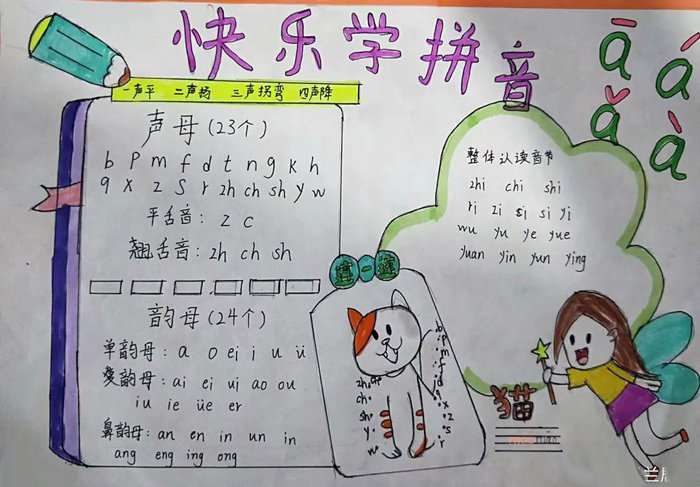 快乐学拼音
ā á
ǎ à
一声平 二声扬 三声拐弯 四声降
声母(23个)
b p m f d t n g k h
q x z s r zh ch sh y w
平舌音: z c
翘舌音: zh ch sh
韵母(24个)
单韵母: a o e i i u ü
复韵母: ai ei ui ao ou
iu ie üe er
鼻韵母: an en in un in
ang eng ing ong
整体认读音节
zhi chi shi
ri zi si si yi
wu yu ye yue
yuan yin yun ying
连一连
b
p
m
f
d
zh
ch
sh
y
w
x
z
s
r
猫